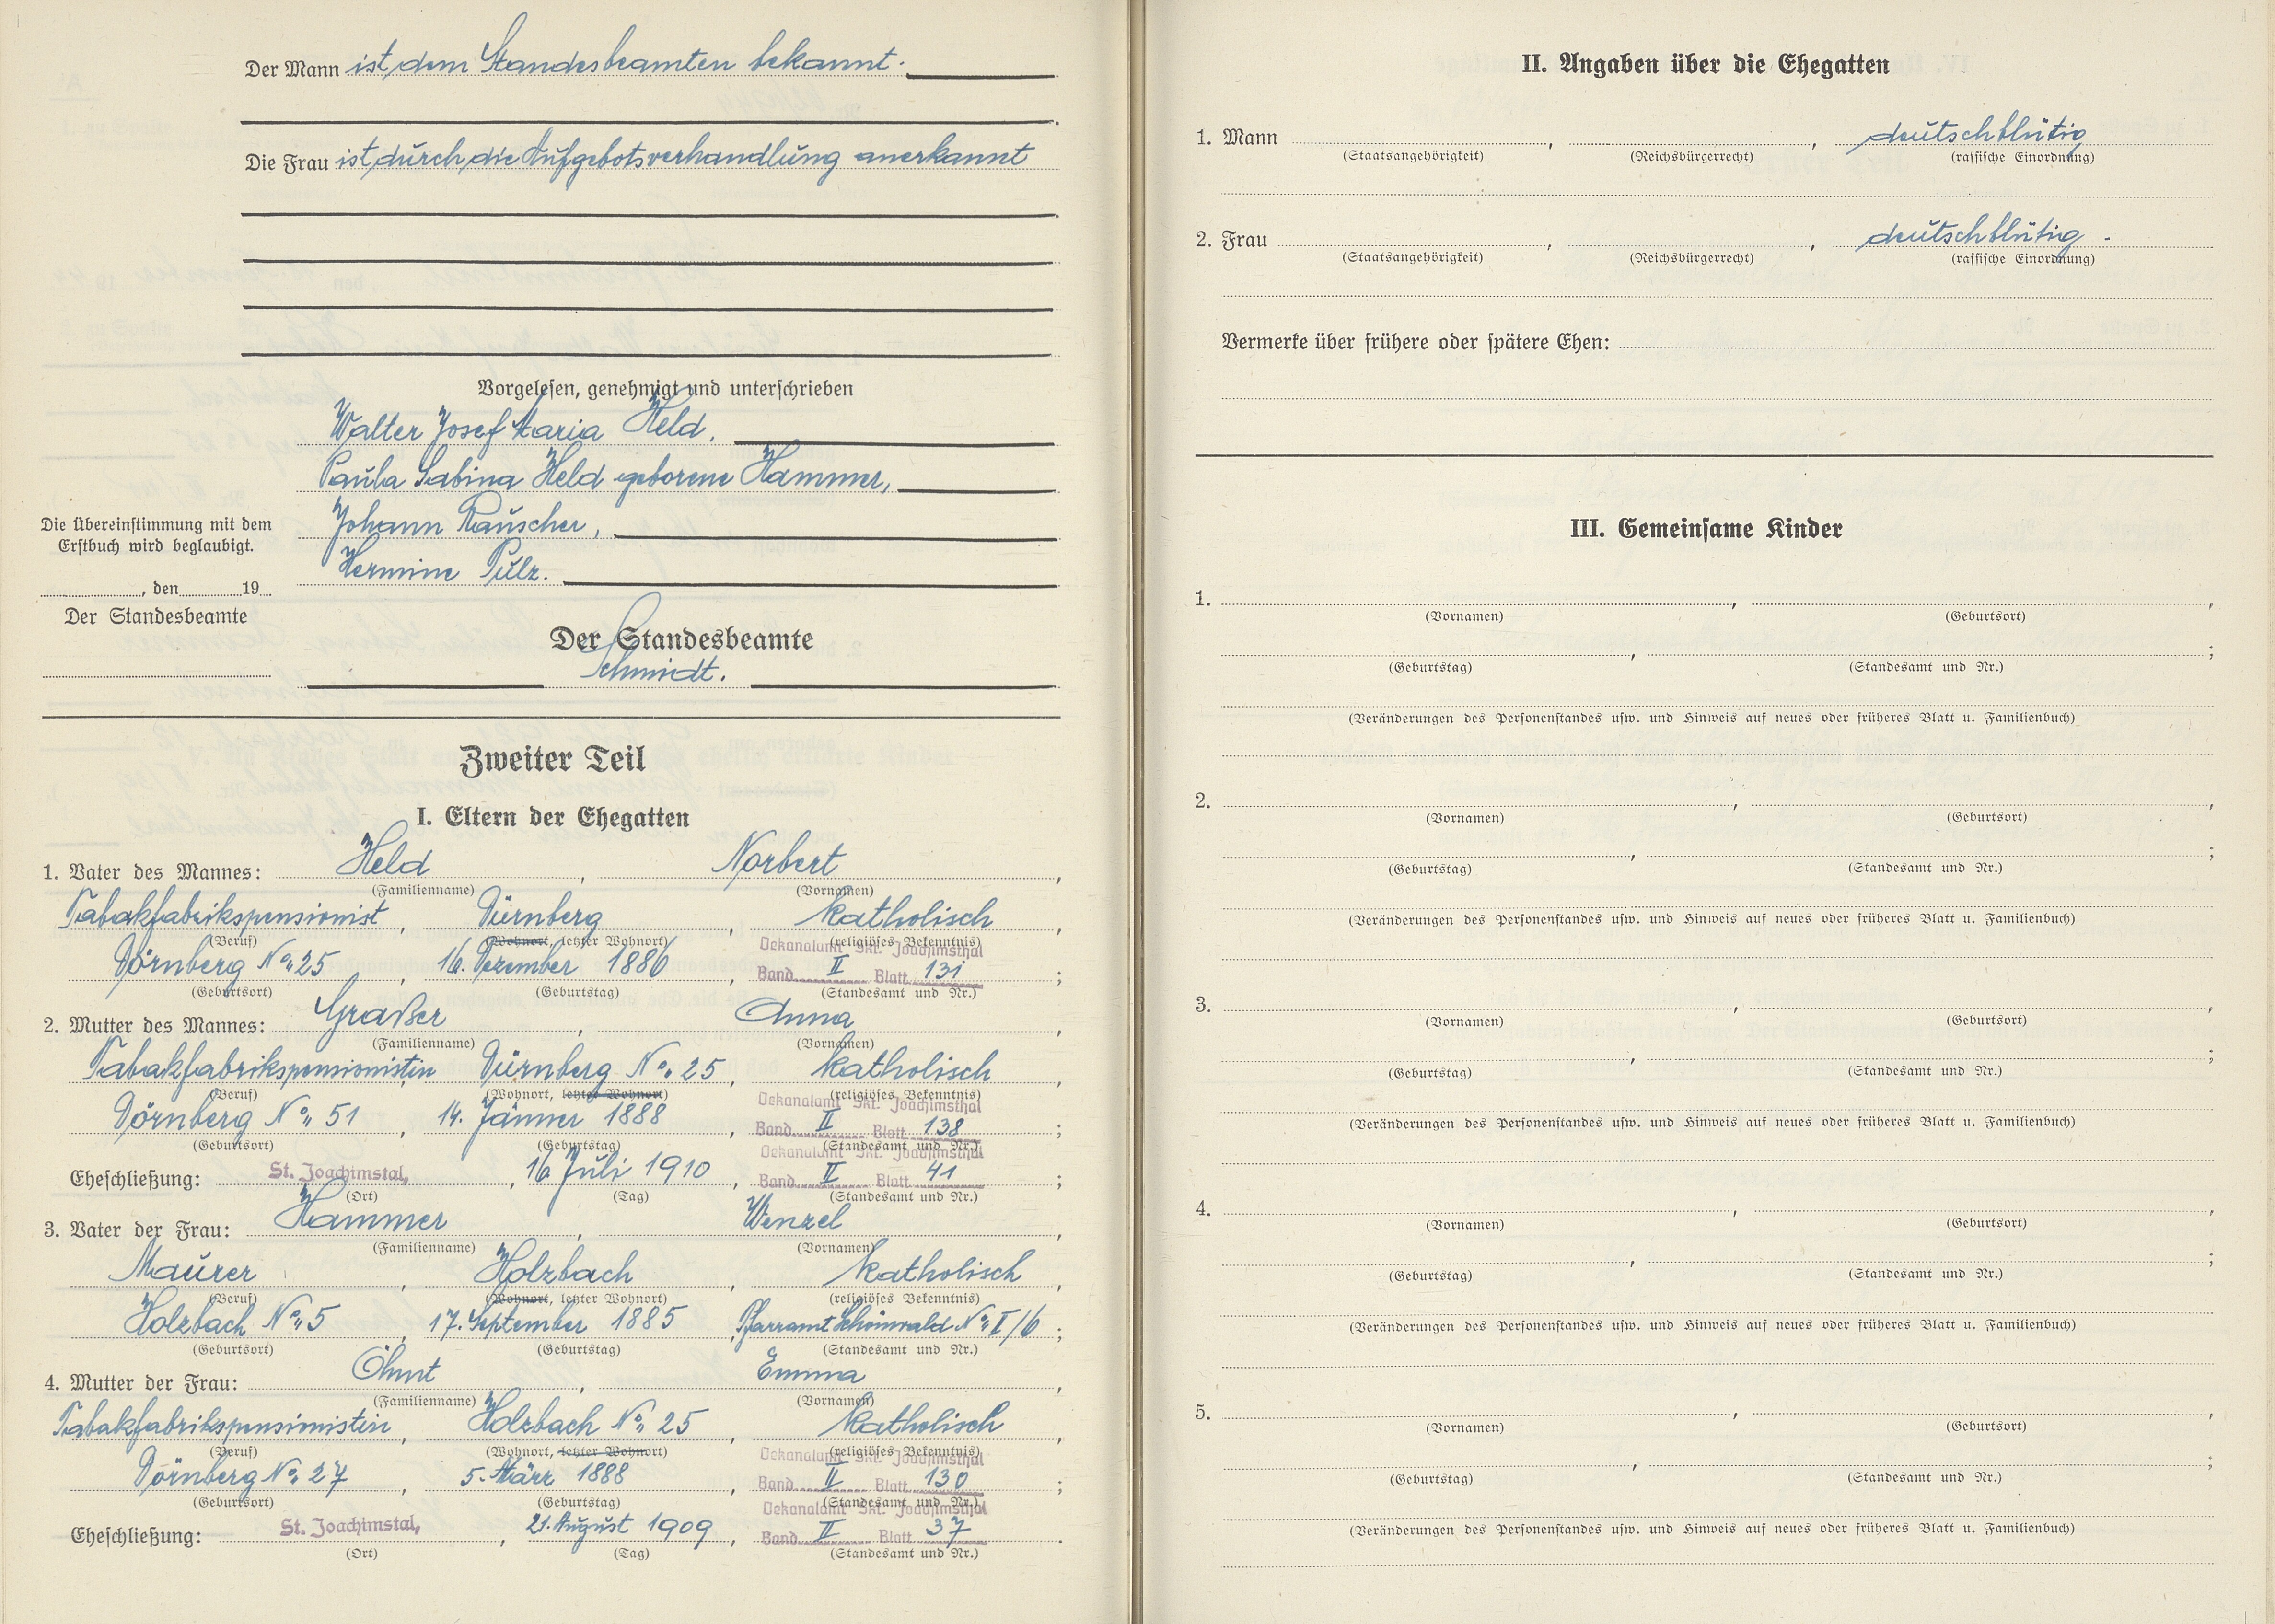 Der Mann ist dem Standesbeamten bekannt.
Die Frau ist durch die Aufgebotsverhandlung anerkannt
Vorgelesen, genehmigt und unterschrieben
Walter Josef Maria Held,
Paula Sabina Held geborene Hammer,
Johann Rauscher,
Hermine Pulz.
Die Übereinstimmung mit dem
Erstbuch wird beglaubigt.
, den 19
Der Standesbeamte
Der Standesbeamte
Schmidt.
Zweiter Teil
I. Eltern der Ehegatten
1. Vater des Mannes: Held, Norbert,
(Familienname) (Vornamen)
Tabakfabrikspensionist, Dürnberg, katholisch,
(Beruf) (Wohnort, letzter Wohnort) (religiöses Bekenntnis)
Dekanalamt Skt. Joachimsthal
Dörnberg No. 25, 16. Dezember 1886, Band II Blatt 131;
(Geburtsort) (Geburtstag) (Standesamt und Nr.)
2. Mutter des Mannes: Graßer, Anna,
(Familienname) (Vornamen)
Tabakfabrikspensionistin, Dürnberg No. 25, katholisch,
(Beruf) (Wohnort, letzter Wohnort) (religiöses Bekenntnis)
Dekanalamt Skt. Joachimsthal
Dörnberg No. 51, 14. Jänner 1888, Band II Blatt 138;
(Geburtsort) (Geburtstag) (Standesamt und Nr.)
Dekanalamt Skt. Joachimsthal
Eheschließung: St. Joachimstal, 16 Juli 1910, Band II Blatt 41;
(Ort) (Tag) (Standesamt und Nr.)
3. Vater der Frau: Hammer, Wenzel,
(Familienname) (Vornamen)
Maurer, Holzbach, katholisch,
(Beruf) (Wohnort, letzter Wohnort) (religiöses Bekenntnis)
Holzbach No. 5, 17. September 1885, Pfarramt Schönwald No. I/6;
(Geburtsort) (Geburtstag) (Standesamt und Nr.)
4. Mutter der Frau: Öhmt, Emma,
(Familienname) (Vornamen)
Tabakfabrikspensionistin, Holzbach No. 25, katholisch,
(Beruf) (Wohnort, letzter Wohnort) (religiöses Bekenntnis)
Dekanalamt Skt. Joachimsthal
Dörnberg No. 27, 5. März 1888, Band II Blatt 130;
(Geburtsort) (Geburtstag) (Standesamt und Nr.)
Dekanalamt Skt. Joachimsthal
Eheschließung: St. Joachimstal, 21. August 1909, Band II Blatt 37.
(Ort) (Tag) (Standesamt und Nr.)
II. Angaben über die Ehegatten
1. Mann , , deutschblütig
(Staatsangehörigkeit) (Reichsbürgerrecht) (rassische Einordnung)
2. Frau , , deutschblütig.
(Staatsangehörigkeit) (Reichsbürgerrecht) (rassische Einordnung)
Vermerke über frühere oder spätere Ehen:
III. Gemeinsame Kinder
1. , ,
(Vornamen) (Geburtsort)
, ;
(Geburtstag) (Standesamt und Nr.)
(Veränderungen des Personenstandes usw. und Hinweis auf neues oder früheres Blatt u. Familienbuch)
2. , ,
(Vornamen) (Geburtsort)
, ;
(Geburtstag) (Standesamt und Nr.)
(Veränderungen des Personenstandes usw. und Hinweis auf neues oder früheres Blatt u. Familienbuch)
3. , ,
(Vornamen) (Geburtsort)
, ;
(Geburtstag) (Standesamt und Nr.)
(Veränderungen des Personenstandes usw. und Hinweis auf neues oder früheres Blatt u. Familienbuch)
4. , ,
(Vornamen) (Geburtsort)
, ;
(Geburtstag) (Standesamt und Nr.)
(Veränderungen des Personenstandes usw. und Hinweis auf neues oder früheres Blatt u. Familienbuch)
5. , ,
(Vornamen) (Geburtsort)
, ;
(Geburtstag) (Standesamt und Nr.)
(Veränderungen des Personenstandes usw. und Hinweis auf neues oder früheres Blatt u. Familienbuch)